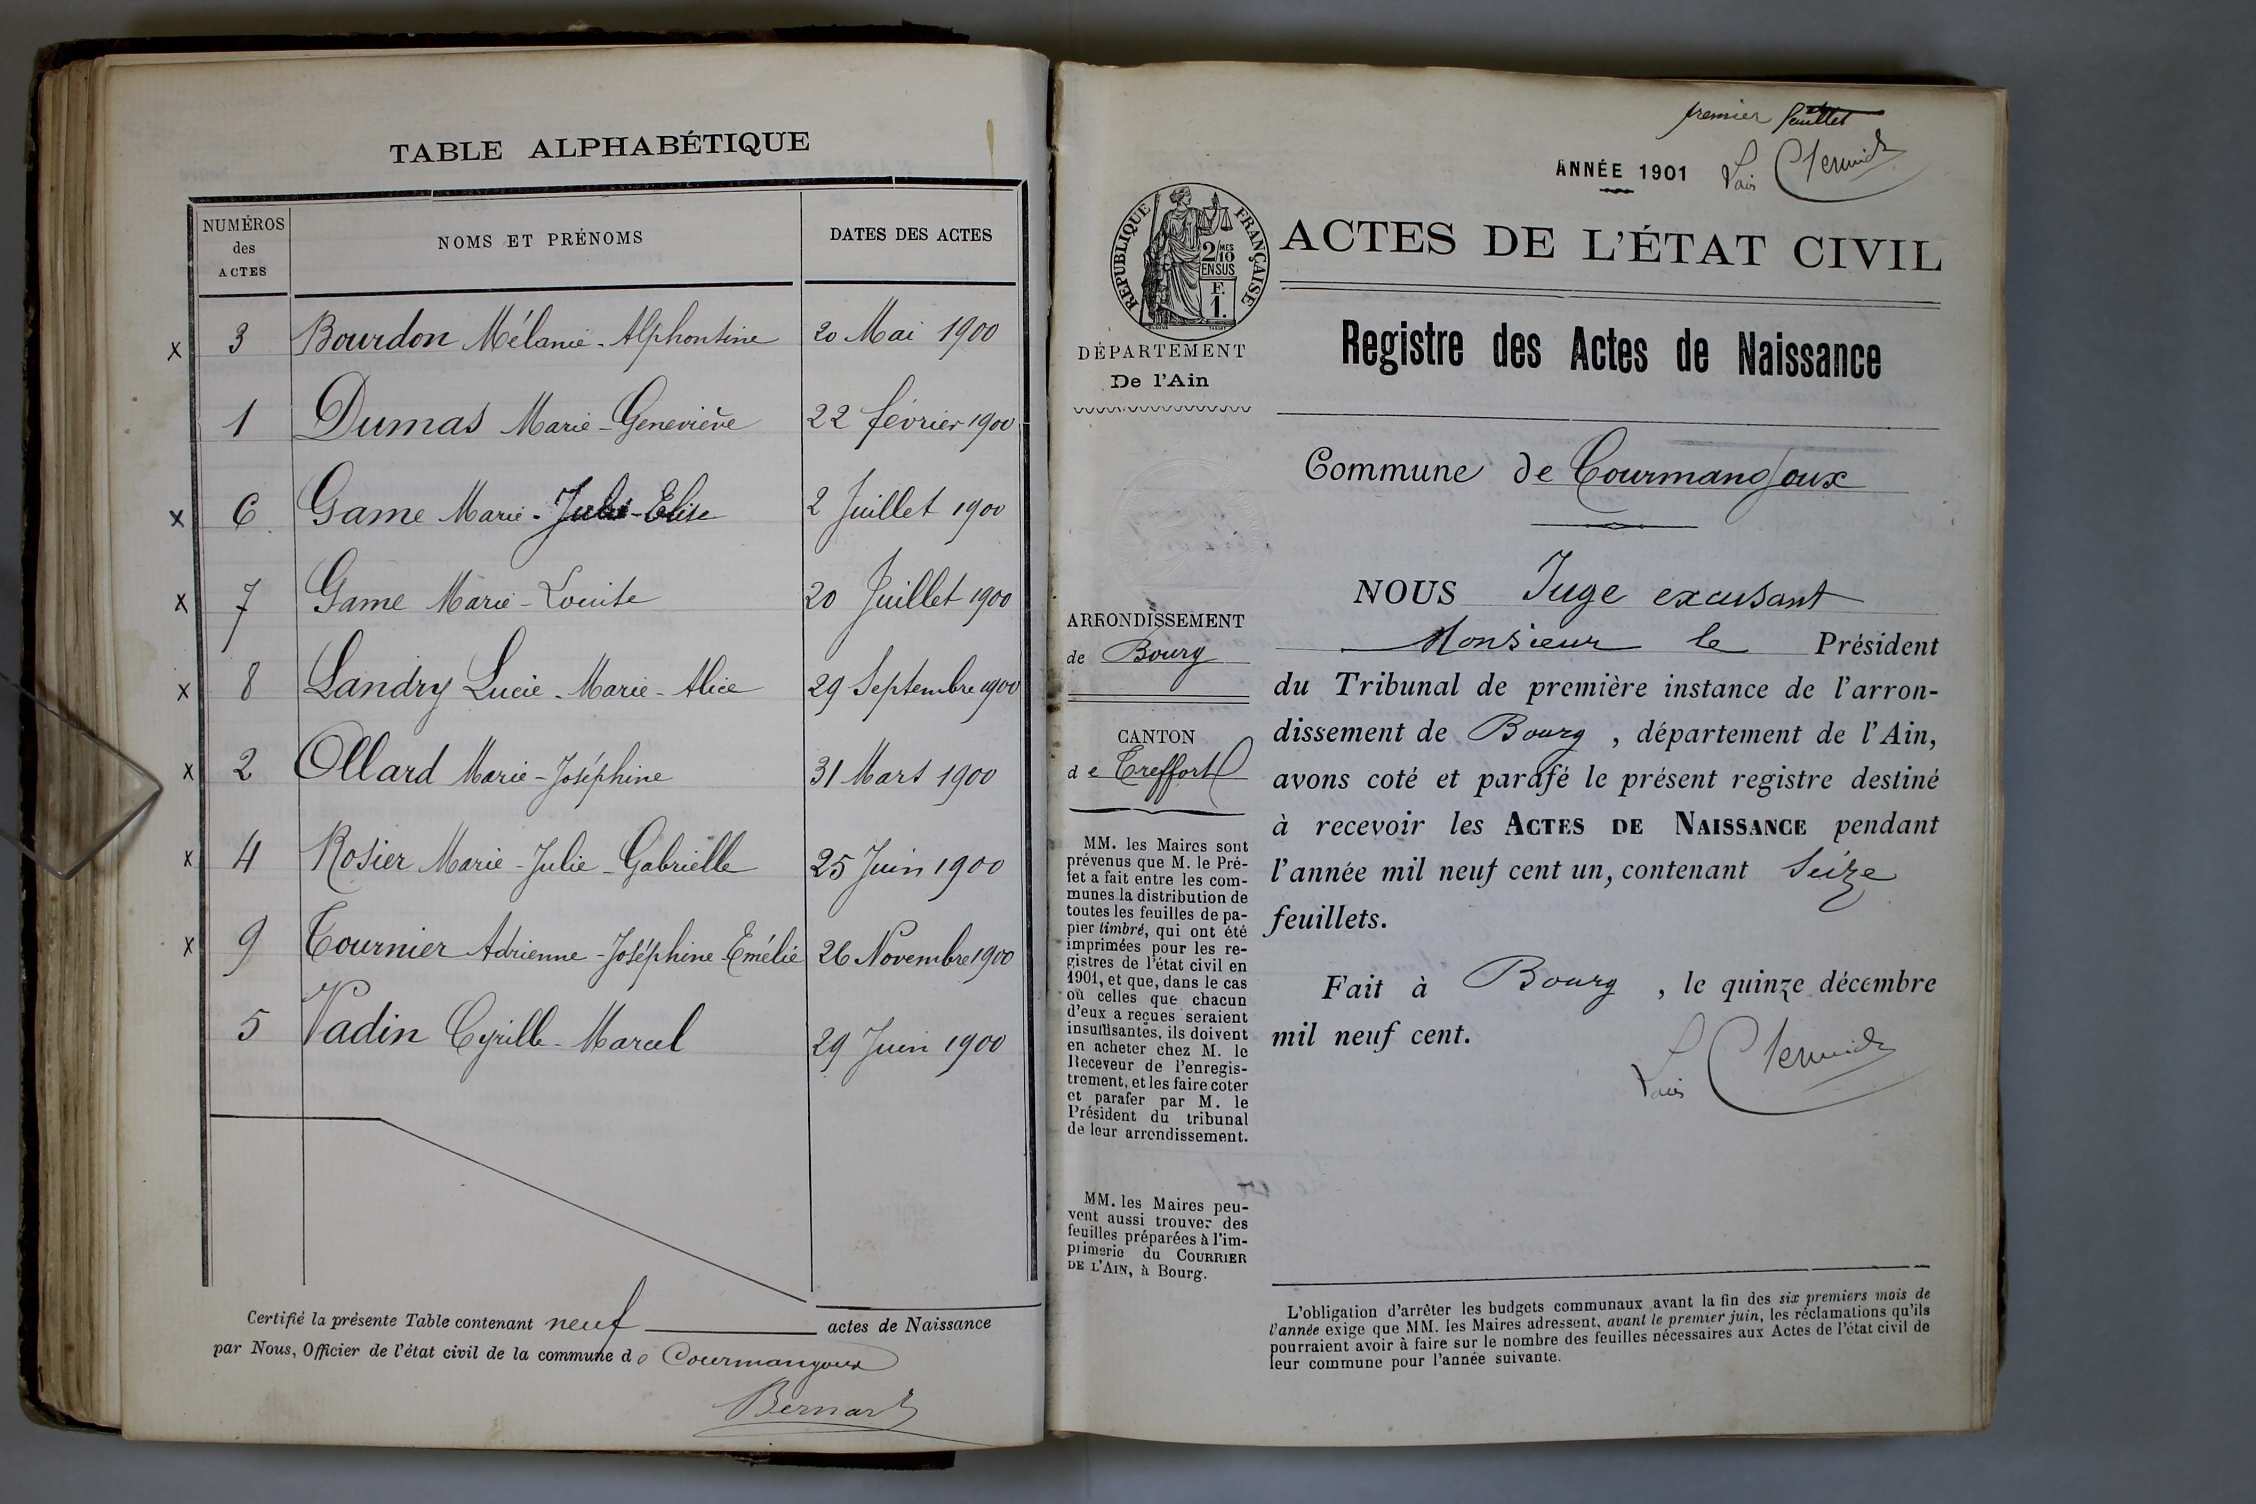 TABLE ALPHABÉTIQUE
NUMÉROS des ACTES
NOMS ET PRÉNOMS
DATES DES ACTES
x 3 Bourdon Mélanie-Alphontine 20 Mai 1900
1 Dumas Marie-Geneviève 22 février 1900
x 6 Game Marie-Julie-Elise 2 Juillet 1900
x 7 Game Marie-Louise 20 Juillet 1900
x 8 Landry Lucie-Marie-Alice 29 Septembre 1900
x 2 Ollard Marie-Joséphine 31 Mars 1900
x 4 Rosier Marie-Julie-Gabrielle 25 Juin 1900
x 9 Tournier Adrienne-Joséphine-Emélie 26 Novembre 1900
5 Vadin Cyrille-Marcel 29 Juin 1900
Certifié la présente Table contenant neuf actes de Naissance
par Nous, Officier de l'état civil de la commune de Courmangoux
Bernard
premier feuillet
ANNÉE 1901
RÉPUBLIQUE FRANÇAISE
2/10 MES
EN SUS
F.
1.
ACTES DE L'ÉTAT CIVIL
Registre des Actes de Naissance
DÉPARTEMENT
De l'Ain
Commune de Courmangoux
ARRONDISSEMENT
de Bourg
CANTON
de Treffort
MM. les Maires sont
prévenus que M. le Pré-
fet a fait entre les com-
munes la distribution de
toutes les feuilles de pa-
pier timbré, qui ont été
imprimées pour les re-
gistres de l'état civil en
1901, et que, dans le cas
où celles que chacun
d'eux a reçues seraient
insuffisantes, ils doivent
en acheter chez M. le
Receveur de l'enregis-
trement, et les faire coter
et parafer par M. le
Président du tribunal
de leur arrondissement.
MM. les Maires peu-
vent aussi trouver des
feuilles préparées à l'im-
primerie du COURRIER
DE L'AIN, à Bourg.
NOUS Juge excusant
Monsieur le Président
du Tribunal de première instance de l'arron-
dissement de Bourg, département de l'Ain,
avons coté et parafé le présent registre destiné
à recevoir les ACTES DE NAISSANCE pendant
l'année mil neuf cent un, contenant seize
feuillets.
Fait à Bourg, le quinze décembre
mil neuf cent.
L'obligation d'arrêter les budgets communaux avant la fin des six premiers mois de
l'année exige que MM. les Maires adressent, avant le premier juin, les réclamations qu'ils
pourraient avoir à faire sur le nombre des feuilles nécessaires aux Actes de l'état civil de
leur commune pour l'année suivante.